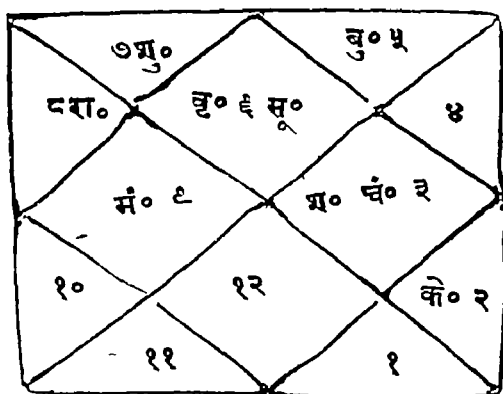 ७शु० बु० ५
८रा० वृ० ६ सू० ४
मं० ९ श० चं० ३
१० १२ के० २
११ १